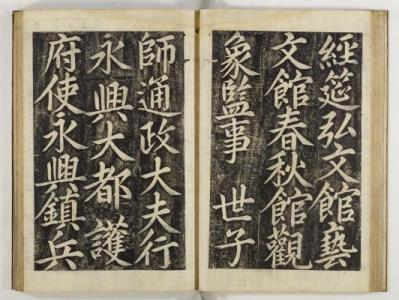 經筵弘文館藝
文館春秋館觀
象監事 世子
師通政大夫行
永興大都護
府使永興鎮兵